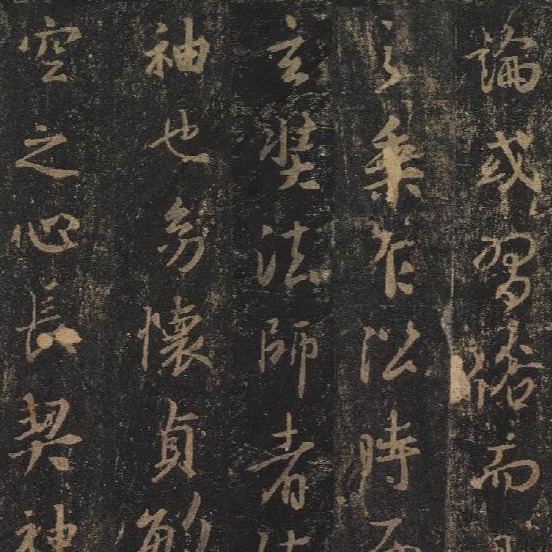 論或習俗而
之乘乍㳂時而
玄奘法師者法
袖也幼懷貞敏
空之心長契神